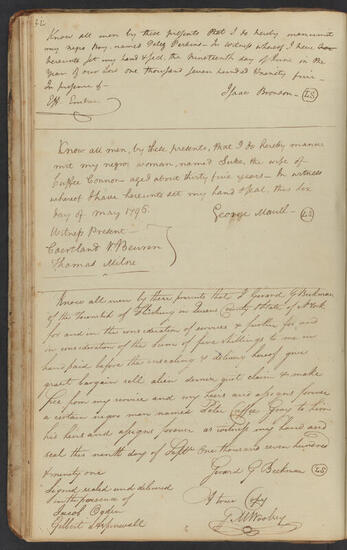 62
Know all men by these presents that I do hereby manumit
my negro Boy, named Peleg Perkins - In witness whereof I have
hereunto set my hand & seal, the nineteenth day of June in the
Year of our Lord one thousand seven hundred & ninety five -
In presence of -
Isaac Bronson - LS
Know all men, by these presents, that I do hereby manu
mit my negro woman, named Suke, the wife of
Cuffee Connon - aged about thirty five years - In witness
whereof I have hereunto set my hand & seal, this six
day of may 1795.
George Mavill - LS
Witness Present -
Courtland V Beuren
Thomas Milne
Know all men by these presents that I Gerard G Beekman
of the Township of Flushing in Queens County & State of N York
for and in the consideration of services & further for, and
in consideration of the sum of five shillings to me in
hand paid before the ensealing & delivery hereof give
grant bargain sell alien quit claim & make
free from my service and my heirs and assigns forever
a certain negro man named Coffee Gray to him
his heirs and assigns forever as witness my hand and
seal this ninth day of Septr One thousand seven hundred
& ninety one
Gerard G Beekman LS
Signed sealed and delivered
in the presence of
Jacob Ogden
Gilbert Aspinwall
A true Copy
T. M. Woolsey